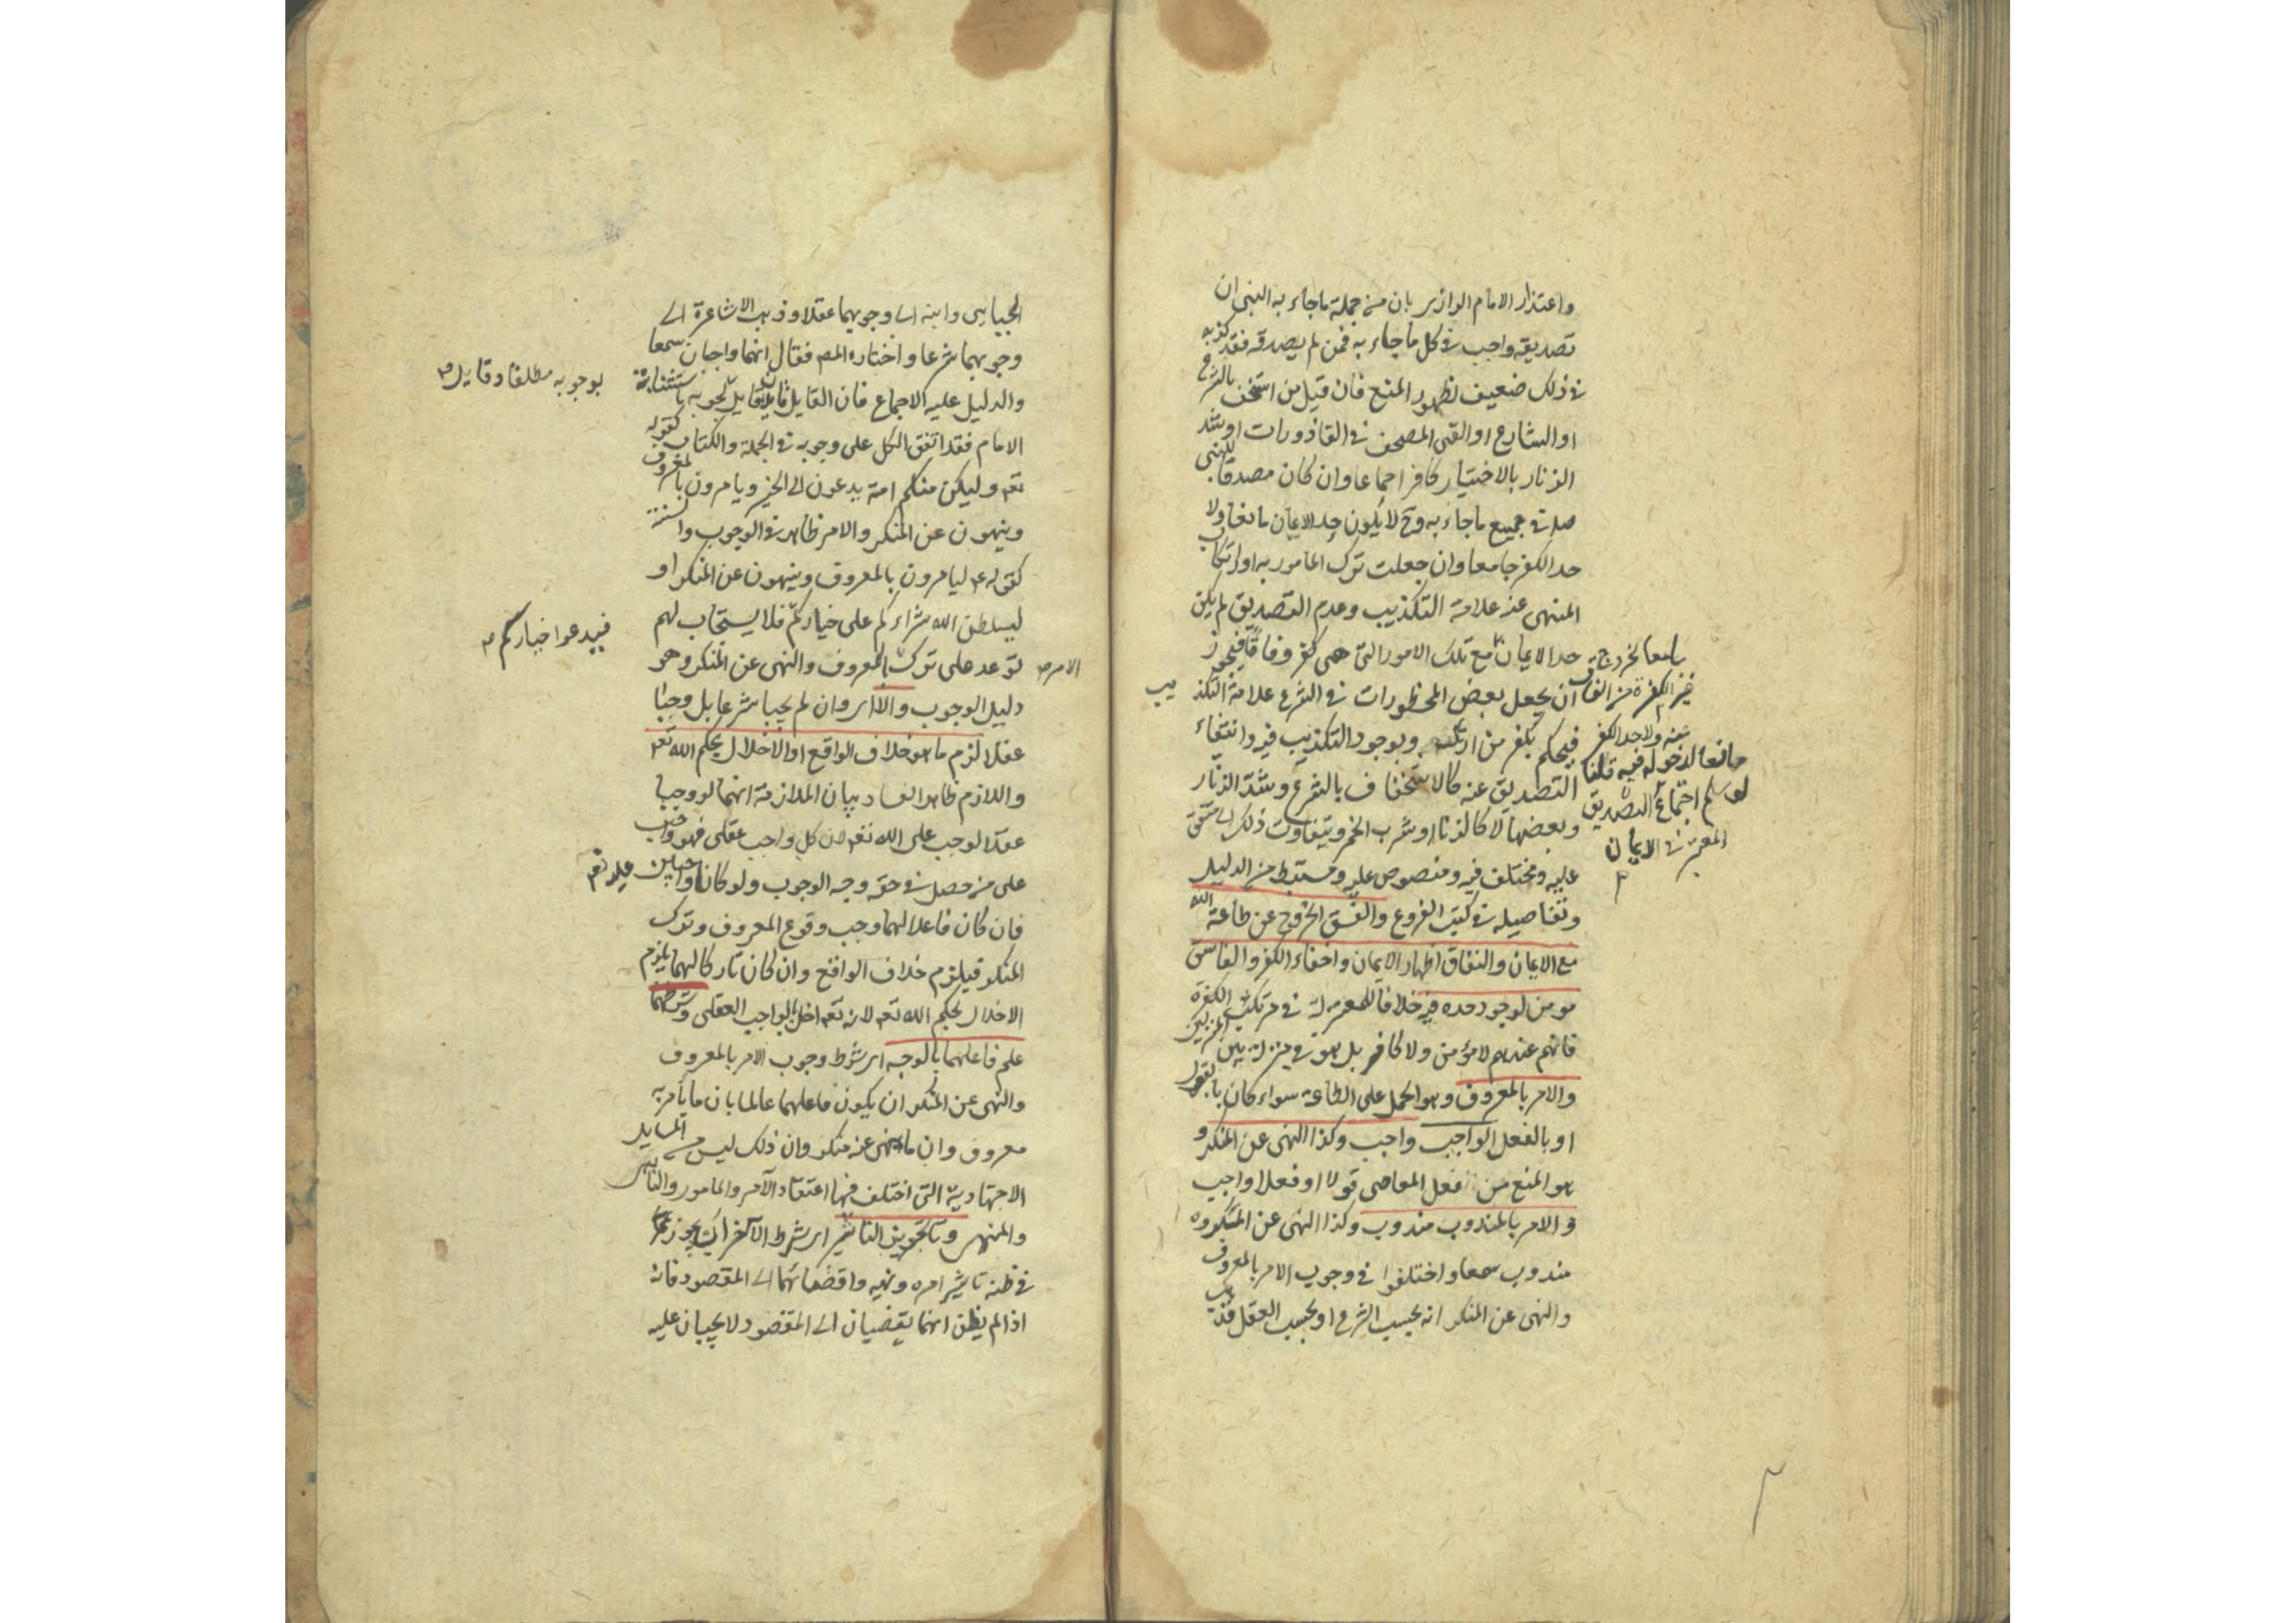 واعتذار الامام الرازى بان من جملة ما جاء به النبى ان
تصديقه واجب فى كل ما جاء به فمن لم يصدقه فقد كذبه
فى ذلك ضعيف لظهور المنع فان قيل من استخف بالشرع
او الشارع او القى المصحف فى القاذورات او شد
الزنار بالاختيار كافر اجماعا وان كان مصدقا للنبى
صلعم فى جميع ما جاء به وح لا يكون حد الايمان مانعا ولا
حد الكفر جامعا وان جعلت ترك المامور به او ارتكاب
المنهى عنه علامة التكذيب وعدم التصديق لم يكن
حد الايمان مع تلك الامور التى هى كفر وفاقا فيجوز
ان يجعل بعض المحظورات فى الشرع علامة التكذيب
فيحكم بكفر من ارتكبه وبوجود التكذيب فيه وانتفاء
التصديق عنه كالاستخفاف بالشرع وشد الزنار
وبعضها لا كالزنا وشرب الخمر ويتفاوت ذلك الى متفق
عليه ومختلف فيه ومنصوص عليه ومستنبط من الدليل
وتفاصيله فى كتب الفروع والفسق الخروج عن طاعة الله
مع الايمان والنفاق اظهار الايمان واخفاء الكفر والفاسق
مومن لوجود حده فيه خلافا للمعتزلة فى مرتكب الكبيرة
فانهم عندهم لا مؤمن ولا كافر بل هو فى منزلة بين المنزلتين
والامر بالمعروف وهو الحمل على الطاعة سواء كان بالقول
او بالفعل الواجب واجب وكذا النهى عن المنكر و
هو المنع من فعل المعاصى قولا او فعلا واجب
والامر بالمندوب مندوب وكذا النهى عن المكروه
مندوب سمعا واختلفوا فى وجوب الامر بالمعروف
والنهى عن المنكر انه بحسب الشرع او بحسب العقل فذهب
جامعا لخروج
غير الكفرة من الفساق
عنه ولا حد الكفر
مانعا لدخوله فيه قلنا
لو سلم اجتماع التصديق
المعتبر فى الايمان
الجبايى وابنه الى وجوبهما عقلا وذهب الاشاعرة الى
وجوبهما شرعا واختاره المص فقال انهما واجبان سمعا
والدليل عليه الاجماع فان القايل قايلان قايل بوجوبه باستنابة
بوجوبه مطلقا وقايل
الامام فقد اتفق الكل على وجوبه فى الجملة والكتاب كقوله
تعه ولتكن منكم امة يدعون الى الخير ويامرون بالمعروف
وينهون عن المنكر والامر ظاهر فى الوجوب والسنة
كقوله عم ليامرون بالمعروف وينهون عن المنكر او
ليسلطن الله شراركم على خياركم فلا يستجاب لهم
فيدعوا خياركم
توعد على ترك بالمعروف والنهى عن المنكر وهو
الامر
دليل الوجوب والا اى وان لم يجبا شرعا بل وجبا
عقلا لزم ما هو خلاف الواقع او الاخلال بحكم الله تعه
واللازم ظاهر الفساد بيان الملازمة انهما لو وجبا
عقلا لوجب على الله تعه لان كل واجب عقلى فهو واجب
على من حصل فى حقه وجه الوجوب ولو كانا واجبين عليه تعه
فان كان فاعلا لهما وجب وقوع المعروف وترك
المنكر فيلزم خلاف الواقع وان كان تاركا لهما يلزم
الاخلال بحكم الله تعه لانه تعه اخل بالواجب العقلى وشرطهما
علم فاعلهما بالوجه اى شرط وجوب الامر بالمعروف
والنهى عن المنكر ان يكون فاعلهما عالما بان ما يأمر به
معروف وان ما ينهى عنه منكر وان ذلك ليس من المسايل
الاجتهادية التى اختلف فيها اعتقاد الآمر والمامور والناهى
والمنهى وتجويز التاثير اى شرط الآخر ان يجوز
فى ظنه تاثير امره ونهيه وافضائهما الى المقصود فانه
اذا لم يظن انهما يفضيان الى المقصود لا يجبان عليه